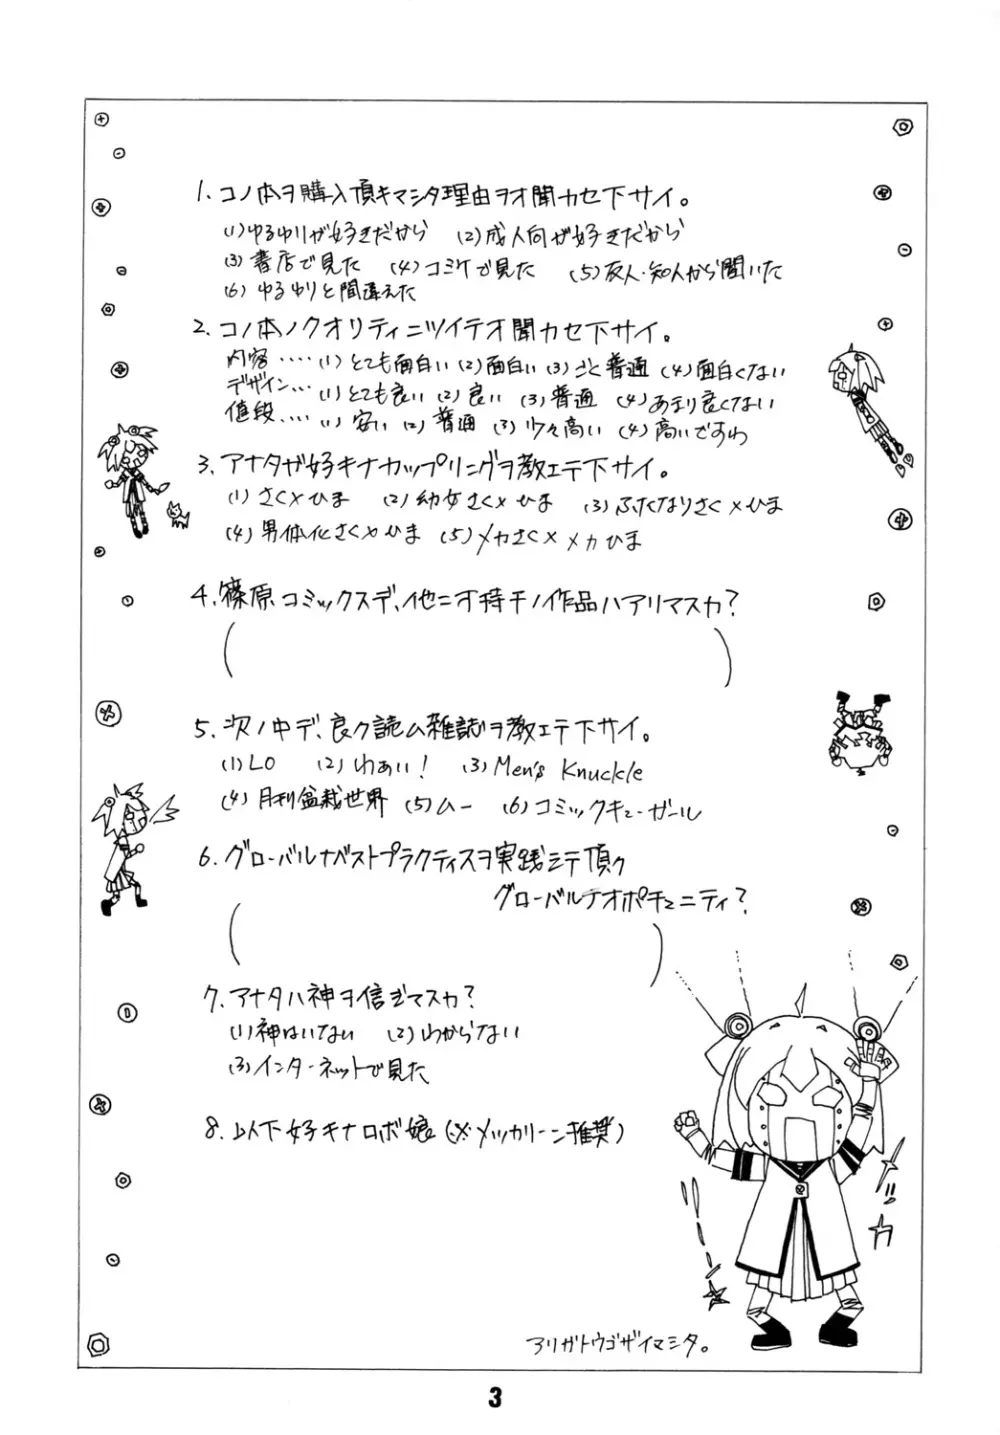 1. コノ本ヲ購入頂キマシタ理由ヲオ聞カセ下サイ。
(1)ゆるゆりが好きだから (2)成人向が好きだから
(3)書店で見た (4)コミケで見た (5)友人・知人から聞いた
(6)ゆるゆりと間違えた
2. コノ本ノクオリティニツイテオ聞カセ下サイ。
内容‥‥(1)とても面白い(2)面白い(3)ごと普通(4)面白くない
デザイン…(1)とても良い(2)良い(3)普通(4)あまり良くない
値段‥‥(1)安い(2)普通(3)少々高い(4)高いですわ
3. アナタガ好キナカップリングヲ教エテ下サイ。
(1)さく×ひま (2)幼女さく×ひま (3)ふたなりさく×ひま
(4)男体化さく×ひま (5)メカさく×メカひま
4. 篠原コミックスデ、他ニオ持チノ作品ハアリマスカ?
( )
5. 次ノ中デ、良ク読ム雑誌ヲ教エテ下サイ。
(1)LO (2)わぁい! (3)Men's Knuckle
(4)月刊盆栽世界 (5)ムー (6)コミックキューガール
6. グローバルナベストプラクティスヲ実践シテ頂ク
グローバルナオポチュニティ?
( )
7. アナタハ神ヲ信ジマスカ?
(1)神はいない (2)わからない
(3)インターネットで見た
8. 以下好キナロボ娘(※メッカリーン推奨)
ピカ
アリガトウゴザイマシタ。
3